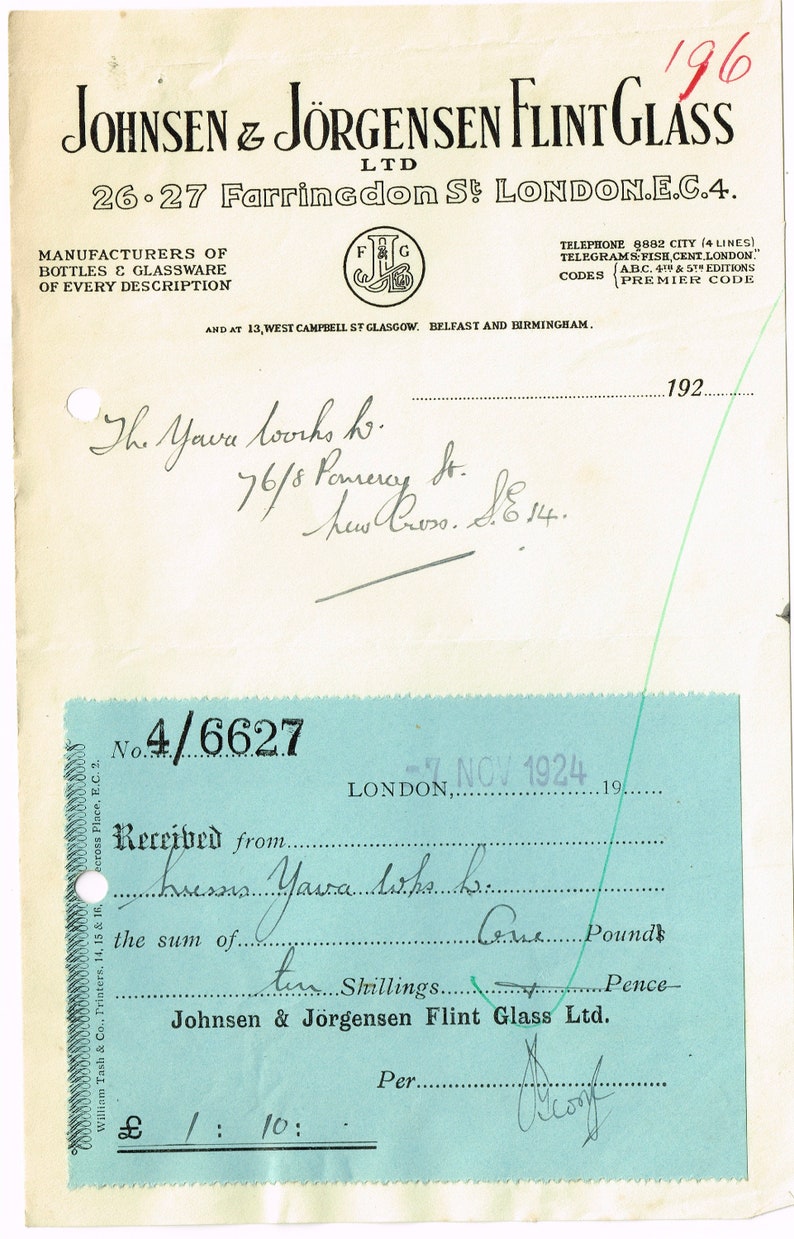 196
JOHNSEN & JÖRGENSEN FLINT GLASS
LTD
26·27 Farringdon St. LONDON.E.C.4.
MANUFACTURERS OF
BOTTLES & GLASSWARE
OF EVERY DESCRIPTION
F G
TELEPHONE 8882 CITY (4 LINES)
TELEGRAMS: "FISH, CENT, LONDON."
CODES { A.B.C. 4TH & 5TH EDITIONS
PREMIER CODE
AND AT 13, WEST CAMPBELL ST GLASGOW. BELFAST AND BIRMINGHAM.
192
The Yava Works
76/8 Pomeroy St.
New Cross. S.E 14.
No. 4/6627
-7 NOV 1924
LONDON, 19
Received from
Messrs Yava Wks
the sum of One Pounds
ten Shillings Pence
Johnsen & Jörgensen Flint Glass Ltd.
Per
£ 1 : 10 :
William Tash & Co., Printers, 14, 15 & 16, ecross Place, E.C. 2.